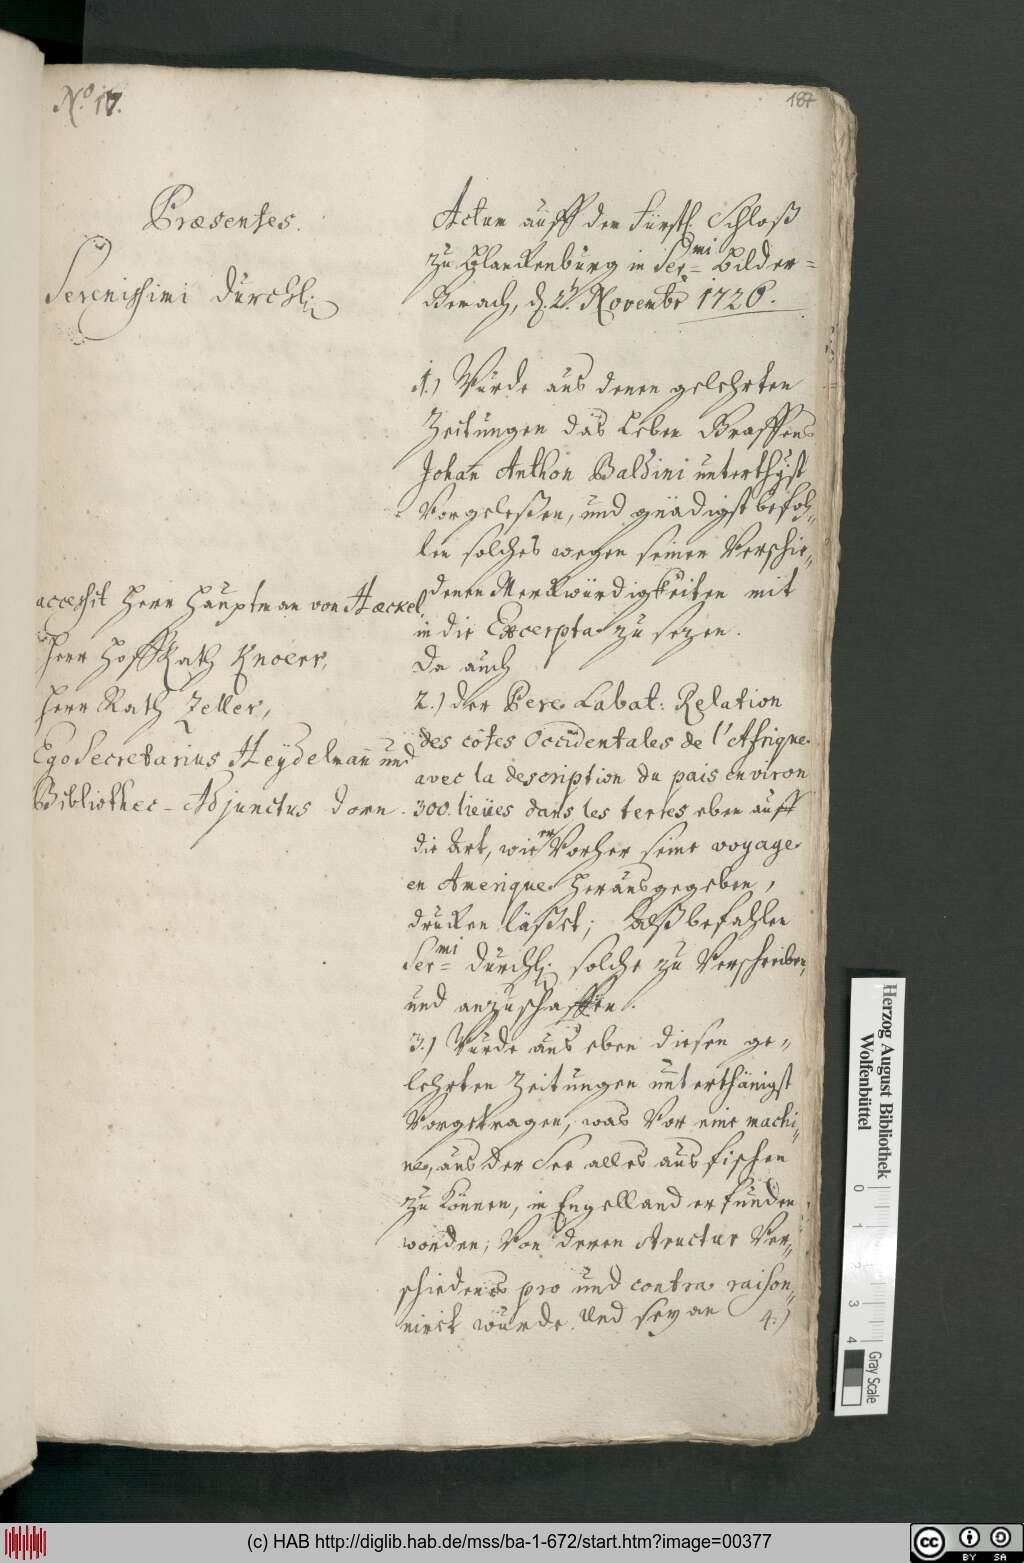 N.o 17.
187
Præsentes.
Serenissimi Durchl:
accessit Herr Hauptman von Hæckel,
Herr HoffRath Knoerr,
Herr Rath Zeller,
Ego Secretarius Heydelmann und
Bibliothec-Adjunctus Dorn.
Actum auff dem Fürstl. Schloß
zu Blanckenburg in Ser=mi Bilder=
Gemach, d. Novembr 1726.
1.) Wurde aus denen gelehrten
Zeitungen das Leben Graffens
Johan Anthon Baldini unterthgst
Vorgeleßen, und gnädigst befoh„
len solches wegen seiner Verschie„
denen Merckwürdigkeiten mit
in die Excerpta zu sezen.
Da auch
2.) der Pere Labat: Relation
des côtes Occidentales de l'Afrique
avec la description du païs environ
300. lieües dans les terres eben auff
die Art, wie er Vorher seine voyage
en Amerique herausgegeben,
drucken läßet; befahlen
Ser=mi Durchl: solche zu Verschreiben,
und anzuschaffen.
3.) Wurde aus eben diesen ge„
lehrten Zeitungen unterthänigst
Vorgetragen, was Vor eine machi„
ne, aus der See alles aus fischen
zu können, in Engelland erfunden
worden; Von deren structur Ver„
schiedenes pro und contra raison„
nirt wurde. Und sey an
4.)
Herzog August Bibliothek
Wolfenbüttel
0 1 2 3 4
Gray Scale
(c) HAB http://diglib.hab.de/mss/ba-1-672/start.htm?image=00377
cc BY SA